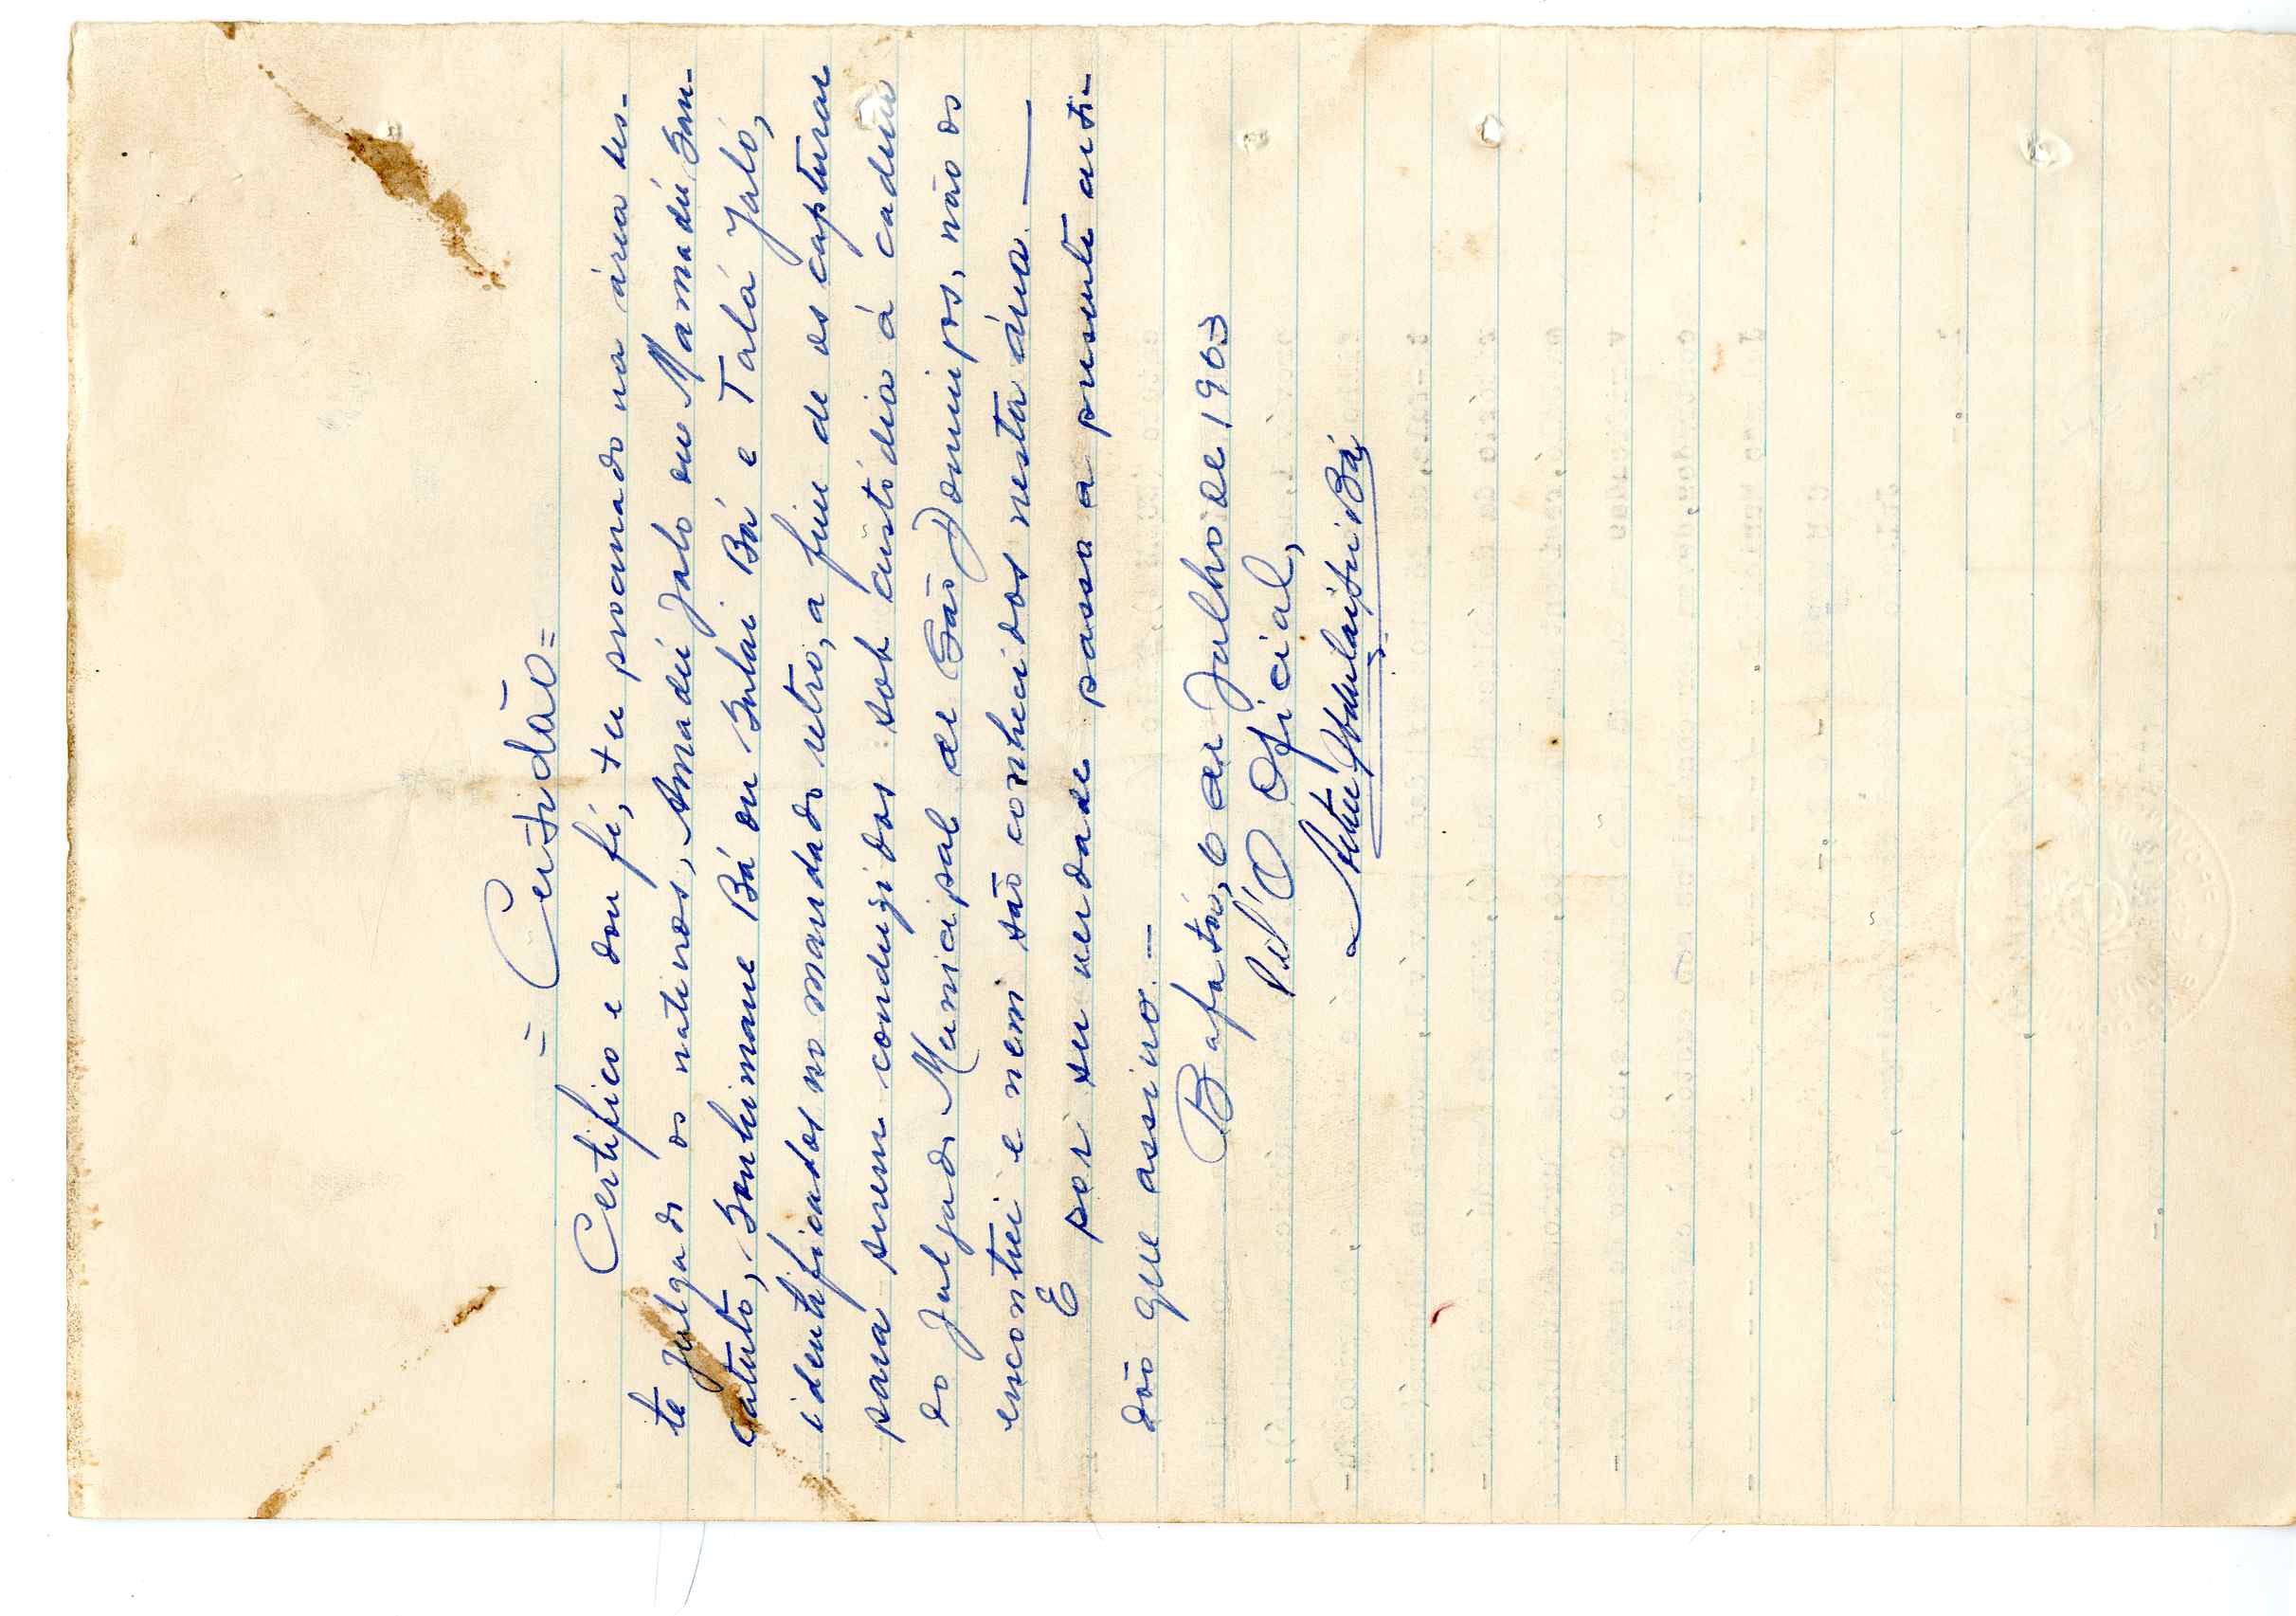 = Certidão =
Certifico e dou fé, ter procurado na área des-
te Julgado os nativos, Amadú Jaló ou Mamadú San-
catuto, Bubimane Bá ou Bubai Bá e Talá Jaló,
identificados no mandado retro, a fim de os capturar
para serem conduzidos sob custódia á cadeia
do Julgado Municipal de São Domingos, não os
encontrei e nem são conhecidos nesta área. —
E por ser verdade passo a presente certi-
dão que assino. —
Bafatá, 6 de Julho de 1963
Pel'O Oficial,
Bá